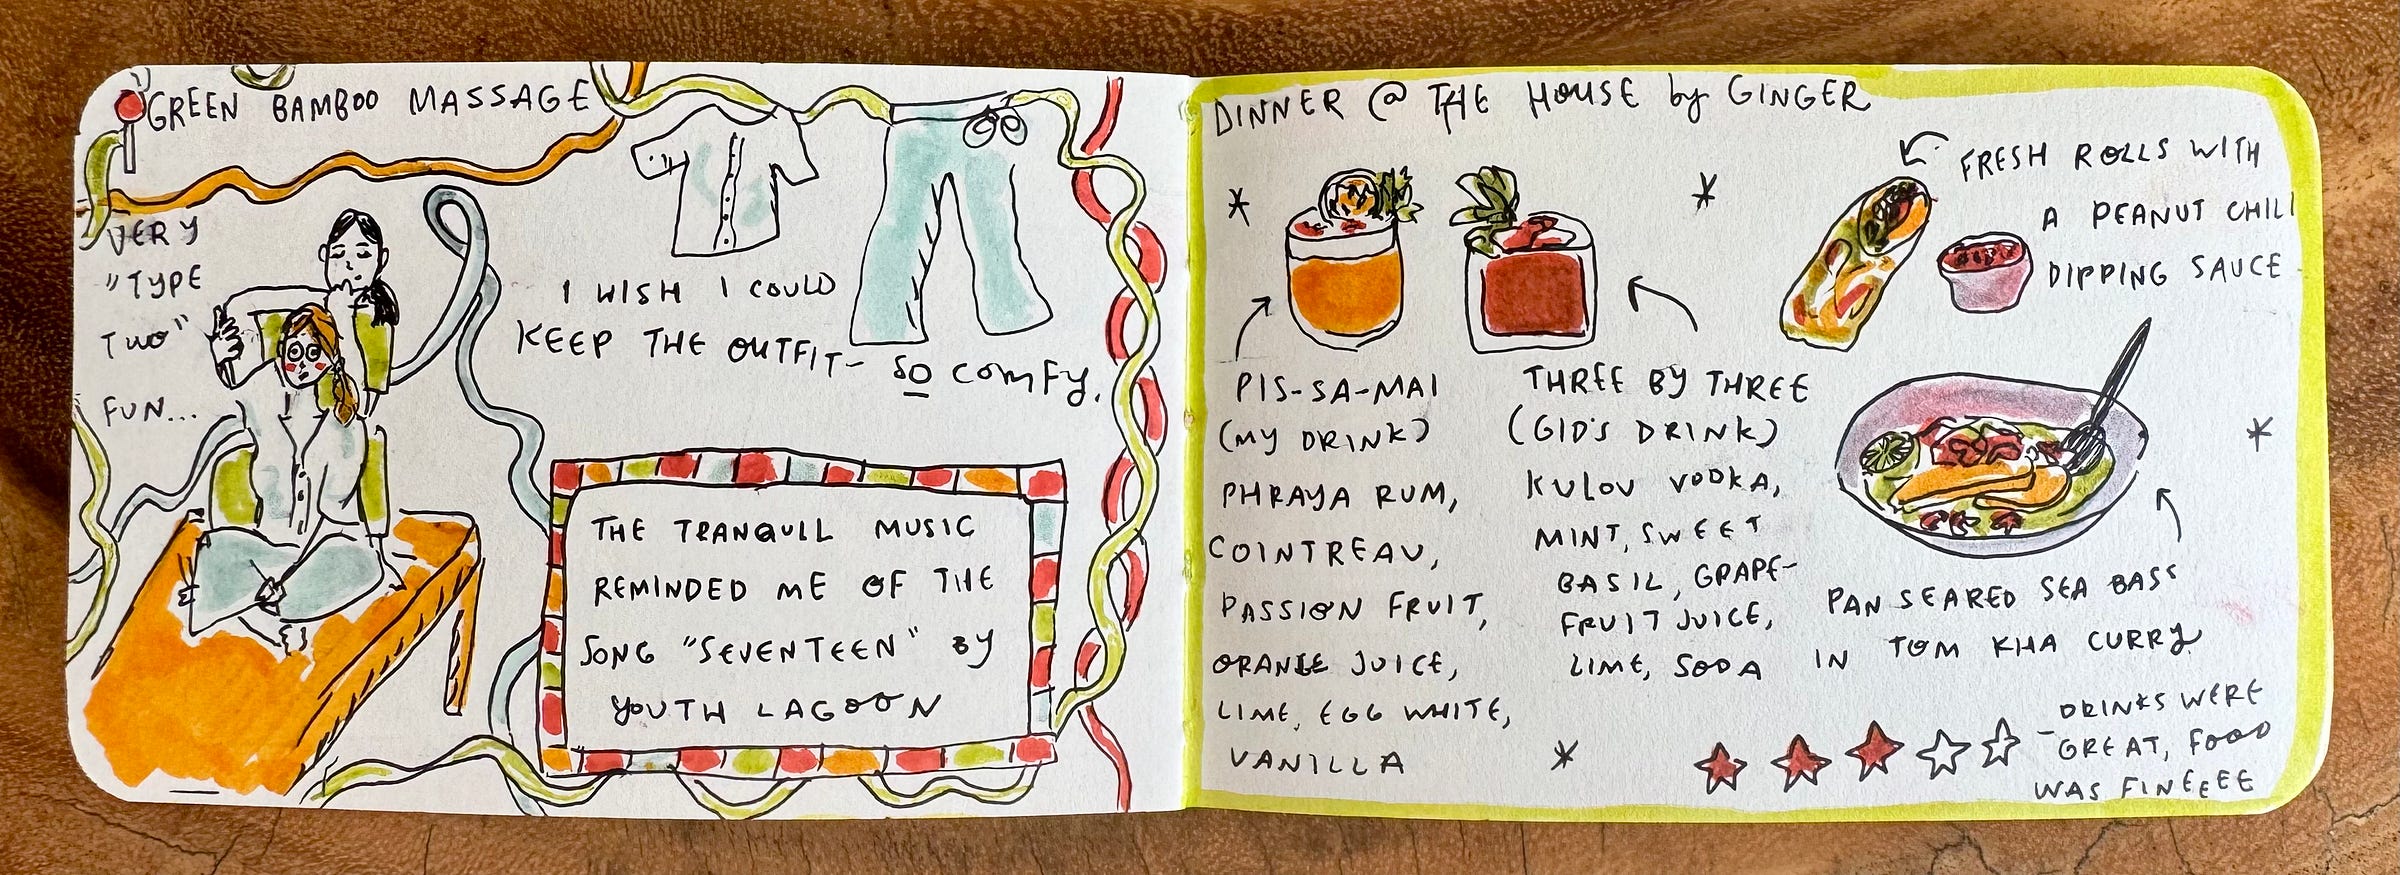 GREEN BAMBOO MASSAGE
VERY
"TYPE
TWO"
FUN...
I WISH I COULD
KEEP THE OUTFIT- SO COMFY.
THE TRANQUIL MUSIC
REMINDED ME OF THE
SONG "SEVENTEEN" BY
YOUTH LAGOON
DINNER @ THE HOUSE by GINGER
PIS-SA-MAI
(MY DRINK)
PHRAYA RUM,
COINTREAU,
PASSION FRUIT,
ORANGE JUICE,
LIME, EGG WHITE,
VANILLA
THREE BY THREE
(GID'S DRINK)
KULOV VODKA,
MINT, SWEET
BASIL, GRAPE-
FRUIT JUICE,
LIME, SODA
FRESH ROLLS WITH
A PEANUT CHILI
DIPPING SAUCE
PAN SEARED SEA BASS
IN TOM KHA CURRY
- DRINKS WERE
GREAT, FOOD
WAS FINEEEE